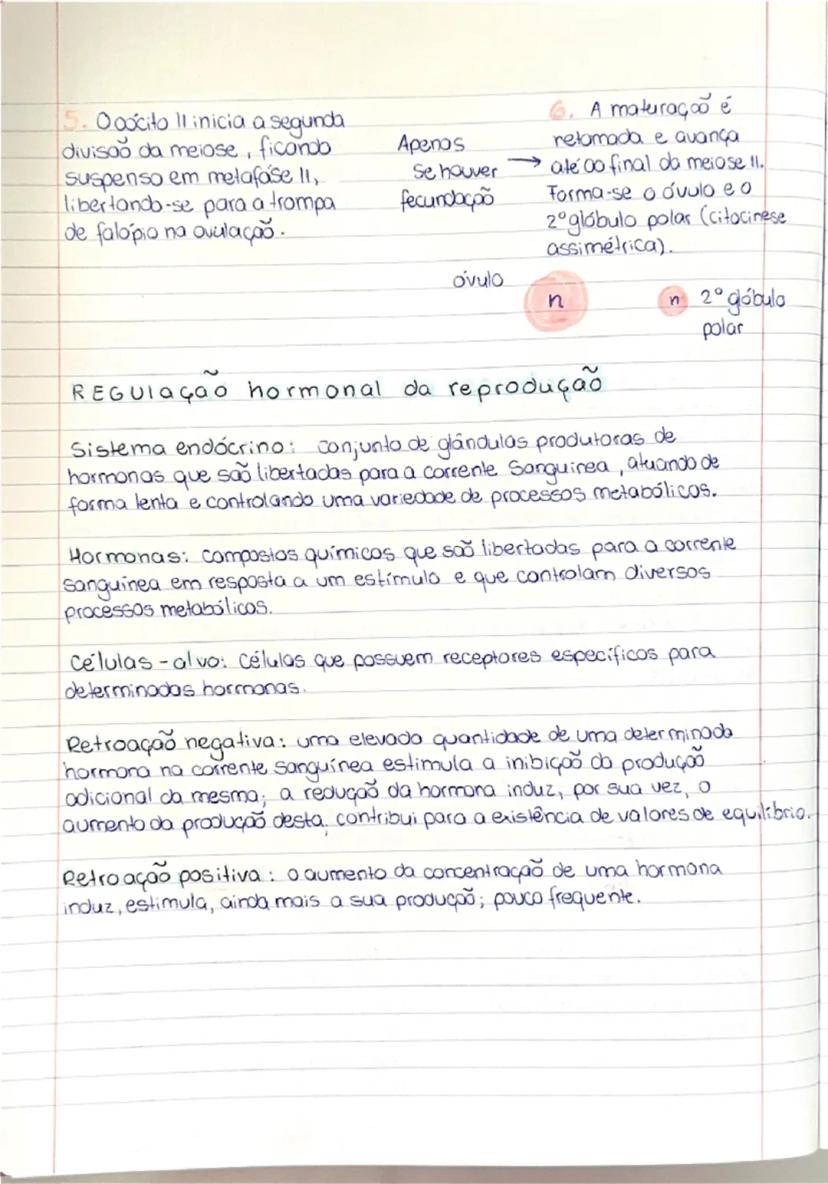 5. O oócito II inicia a segunda
divisão da meiose, ficando
suspenso em metafáse II,
libertando-se para a trompa
de falópio na ovulação.
Apenas
se houver →
fecundação
6. A maturação é
retomada e avança
até ao final da meiose II.
Forma-se o óvulo e o
2º glóbulo polar (citocinese
assimétrica).
óvulo
n
n 2º glóbulo
polar
REGULAÇÃO hormonal da reprodução
Sistema endócrino: conjunto de glândulas produtoras de
hormonas que são libertadas para a corrente sanguínea, atuando de
forma lenta e controlando uma variedade de processos metabólicos.
Hormonas: compostos químicos que são libertadas para a corrente
sanguínea em resposta a um estímulo e que controlam diversos
processos metabólicos.
Células-alvo: células que possuem receptores específicos para
determinadas hormonas.
Retroação negativa: uma elevada quantidade de uma determinada
hormona na corrente sanguínea estimula a inibição da produção
adicional da mesma; a redução da hormona induz, por sua vez, o
aumento da produção desta, contribui para a existência de valores de equilíbrio.
Retroação positiva: o aumento da concentração de uma hormona
induz, estimula, ainda mais a sua produção; pouco frequente.